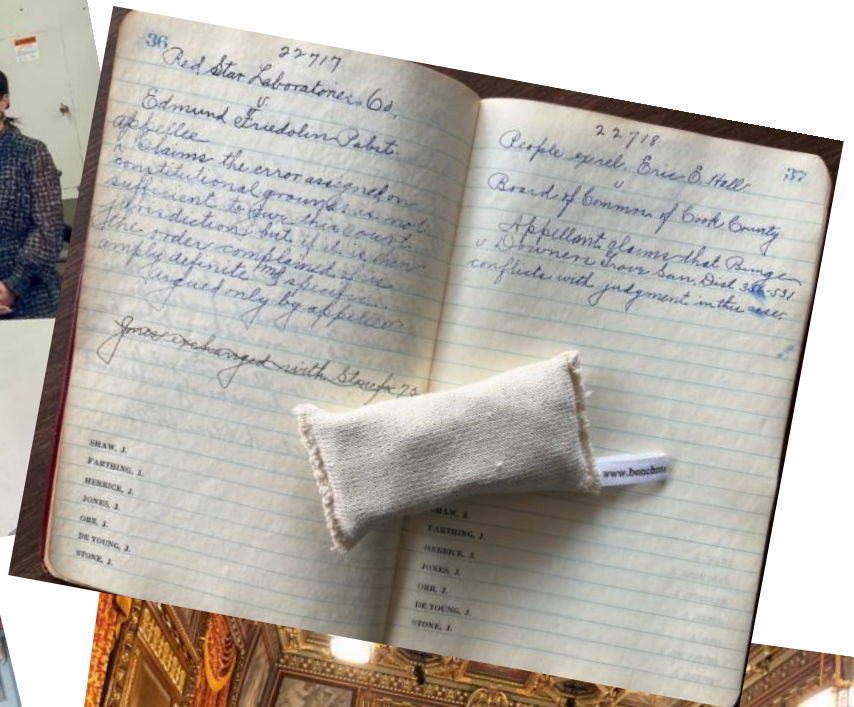 36
22717
Red Star Laboratories Co.
v.
Edmund Friedolin Pabst.
appellee
v claims the error assigned on
constitutional grounds is not
sufficient to give this court
jurisdiction but if it is then
the order complained of is
amply definite and specific.
Argued only by appellee
Jones exchanged with Stone for 75
SHAW, J.
FARTHING, J.
HERRICK, J.
JONES, J.
ORR, J.
DE YOUNG, J.
STONE, J.
37
22718
People ex rel. Eric E. Hall
v
Board of Commrs. of Cook County
Appellant claims that Bunge
v Downers Grove San. Dist 356-531
conflicts with judgment in this case.
SHAW, J.
FARTHING, J.
HERRICK, J.
JONES, J.
ORR, J.
DE YOUNG, J.
STONE, J.